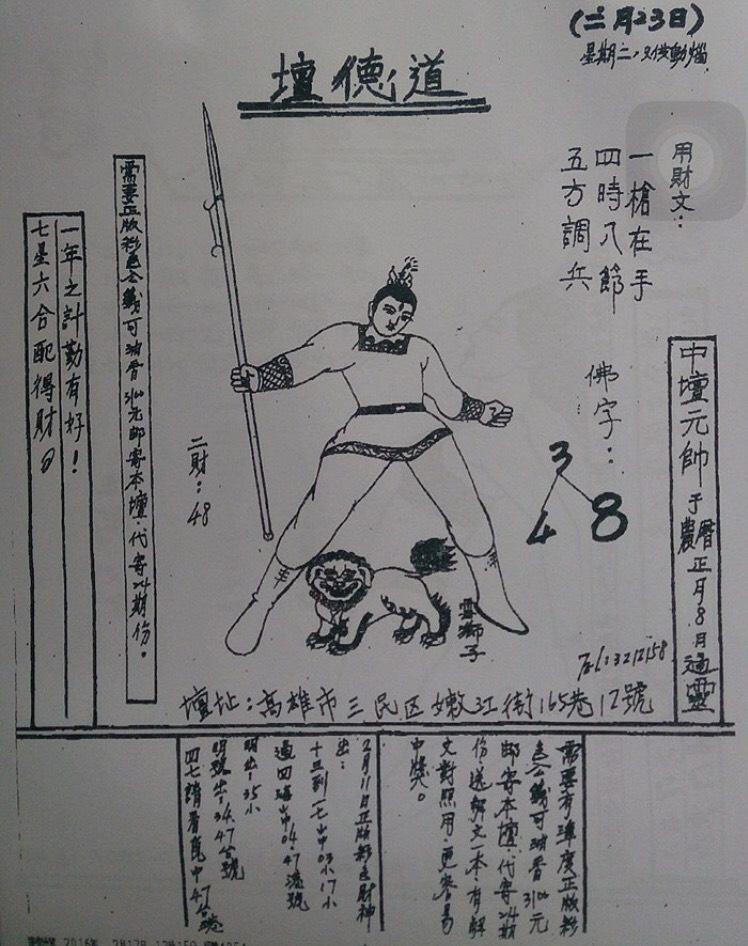 (二月23日)
星期二,又俊動腦
道德壇
用財文:
一槍在手
四時八節
五方調兵
佛字:
3
4 8
中壇元帥于農曆正月8日過靈
需要正版彩色公義可油香3100元郵寄本壇·代寄24期份。
一年之計勤有好!
七星六合配得財
二財:48
雪獅子
Tel:3212158
壇址:高雄市三民区嫩江街165巷12號
需要有準度正版彩
色公義可油香3100元
郵寄本壇·代寄24期
份送解文一本有解
文對照用·更容易
中獎。
2月11日正版彩色財神
出:
十三到一七山中03小17小
過四山中04.47港號
明出:35小
明號出:34.47台號
四七請看見中47台號